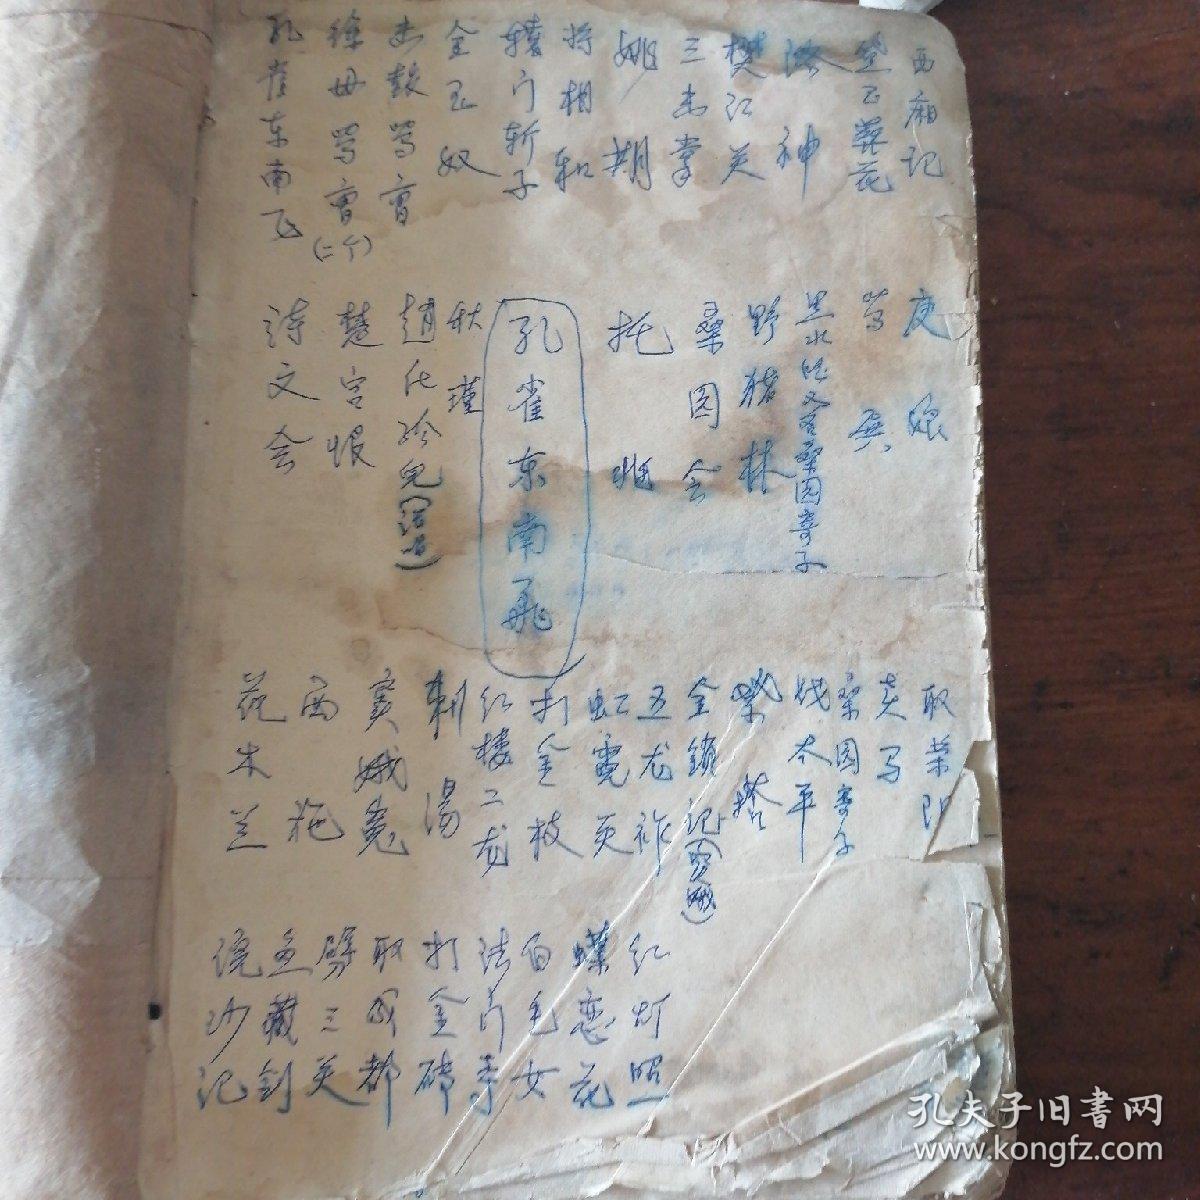 西厢记
黛玉葬花
洛神
樊江关
三击掌
姚期
将相和
辕门斩子
金玉奴
击鼓骂曹
徐母骂曹(二个)
孔雀东南飞
庚娘
骂
黑水
桑园寄子
野猪林
桑园会
托兆
孔雀东南飛
秋瑾
趙化玲兒
楚宫恨
诗文会
取荥阳
卖马
桑园寄子
战太平
祭塔
金鎖记(窦娥)
五龙祚
虹霓关
打金枝
红楼二尤
刺湯
窦娥冤
西施
花木兰
红灯照
蝶恋花
白毛女
法门寺
打金砖
取成都
劈三关
鱼藏剑
浣沙记
孔夫子旧書网
www.kongfz.com